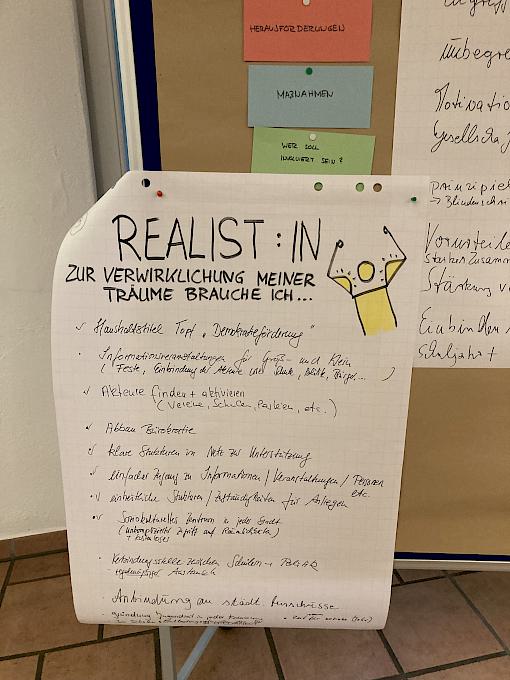 HERAUSFORDERUNGEN
MAßNAHMEN
WER SOLL
INVOLVIERT SEIN?
REALIST:IN
ZUR VERWIRKLICHUNG MEINER
TRÄUME BRAUCHE ICH...
Haushaltstitel Topf „Demokratieförderung"
Informationsveranstaltungen für Groß- und Klein
(Feste, Einbindung der Akteure
Akteure finden + aktivieren
(Vereine, Schulen, Parteien, etc.)
Abbau Bürokratie
klare Strukturen im Netz zur Unterstützung
einfacher Zugang zu Informationen / Veranstaltungen / Personen
etc.
einheitliche Strukturen / Zuständigkeiten für Anliegen
Soziokulturelles Zentrum in jeder Stadt
(unkomplizierter Zugriff auf Räumlichkeiten)
+ kostenloser
Verbindungsstelle zwischen Schülern + Politik
Austausch
Anbindung an städt. Ausschüsse
Motivatio
Gesellscha
Prinzipie
Vorurteile
Stärkung v
Einbinden
Schuljahr +